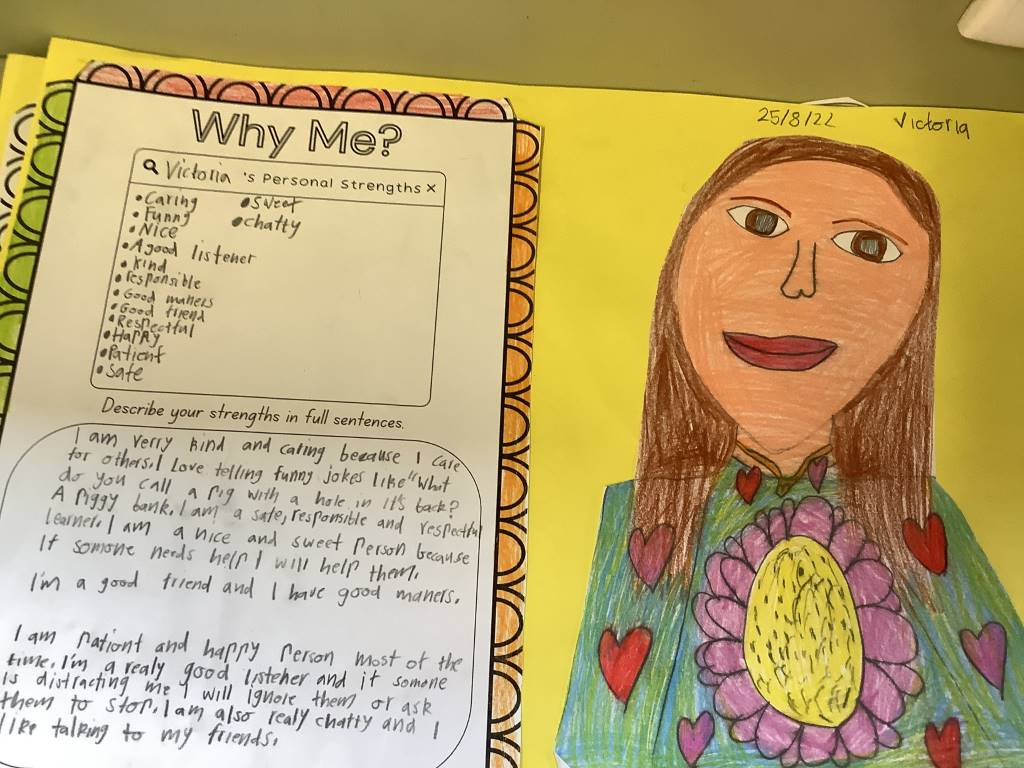 Why Me?
Victoria 's Personal Strengths ×
• Caring • Sweet
• Funny • chatty
• Nice
• A good listener
• kind
• responsible
• Good maners
• Good friend
• Respectful
• Happy
• Patient
• Safe
Describe your strengths in full sentences.
I am verry kind and caring because I care
for others. I Love telling funny jokes like "what
do you call a pig with a hole in it's back?
A Piggy bank. I am a safe, responsible and respectful
learner. I am a nice and sweet person because
If somone needs help I will help them.
I'm a good friend and I have good maners.
I am patient and happy person most of the
time. I'm a realy good listener and if somone
is distracting me I will ignore them or ask
them to stop. I am also realy chatty and I
like talking to my friends.
25/8/22 Victoria